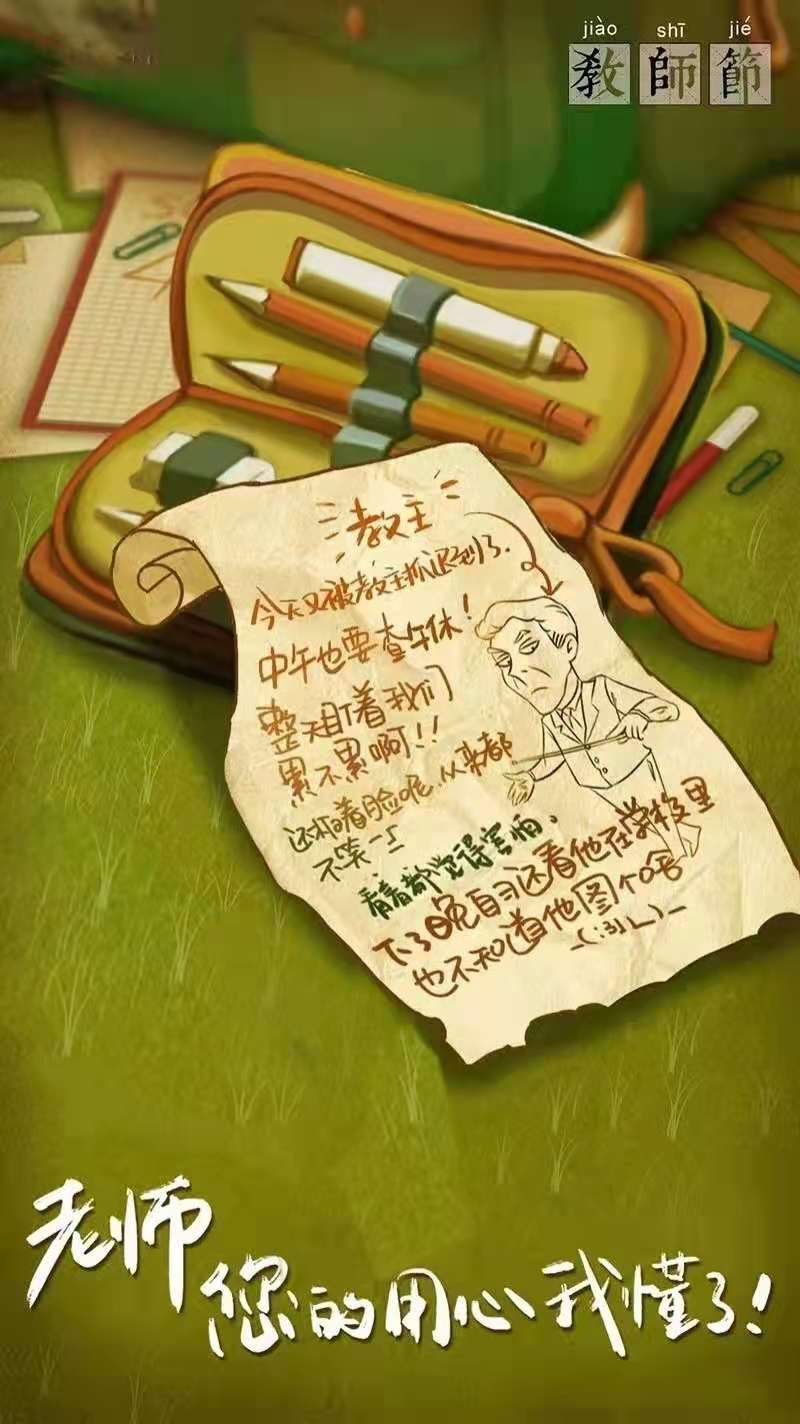 jiào shī jié
教師節
教主
今天又被教主抓迟到了.
中午也要查午休!
整天盯着我们
累不累啊!!
还板着脸呢,从来都
不笑
看着都觉得害怕.
下了晚自习还看他在学校里
也不知道他图个啥
_(:3」∠)_
老师
您的用心我懂了!